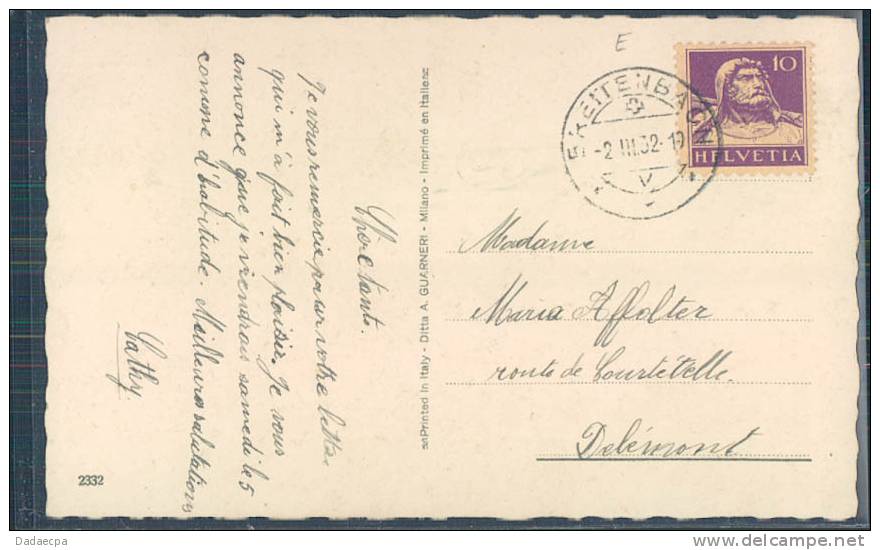 Chère tante.
Je vous remercie pour votre lettre
qui m'a fait bien plaisir. Je vous
annonce que je viendrais samedi le 5
comme d'habitude. Meilleures salutations
Cathy
2332
Printed in Italy - Ditta A. GUARNERI - Milano - Imprimé en Italie
E
10
HELVETIA
BREITENBACH
-2.III.32-
Madame
Maria Affolter
route de Courtételle.
Delémont
Dadaecpa
www.delcampe.net